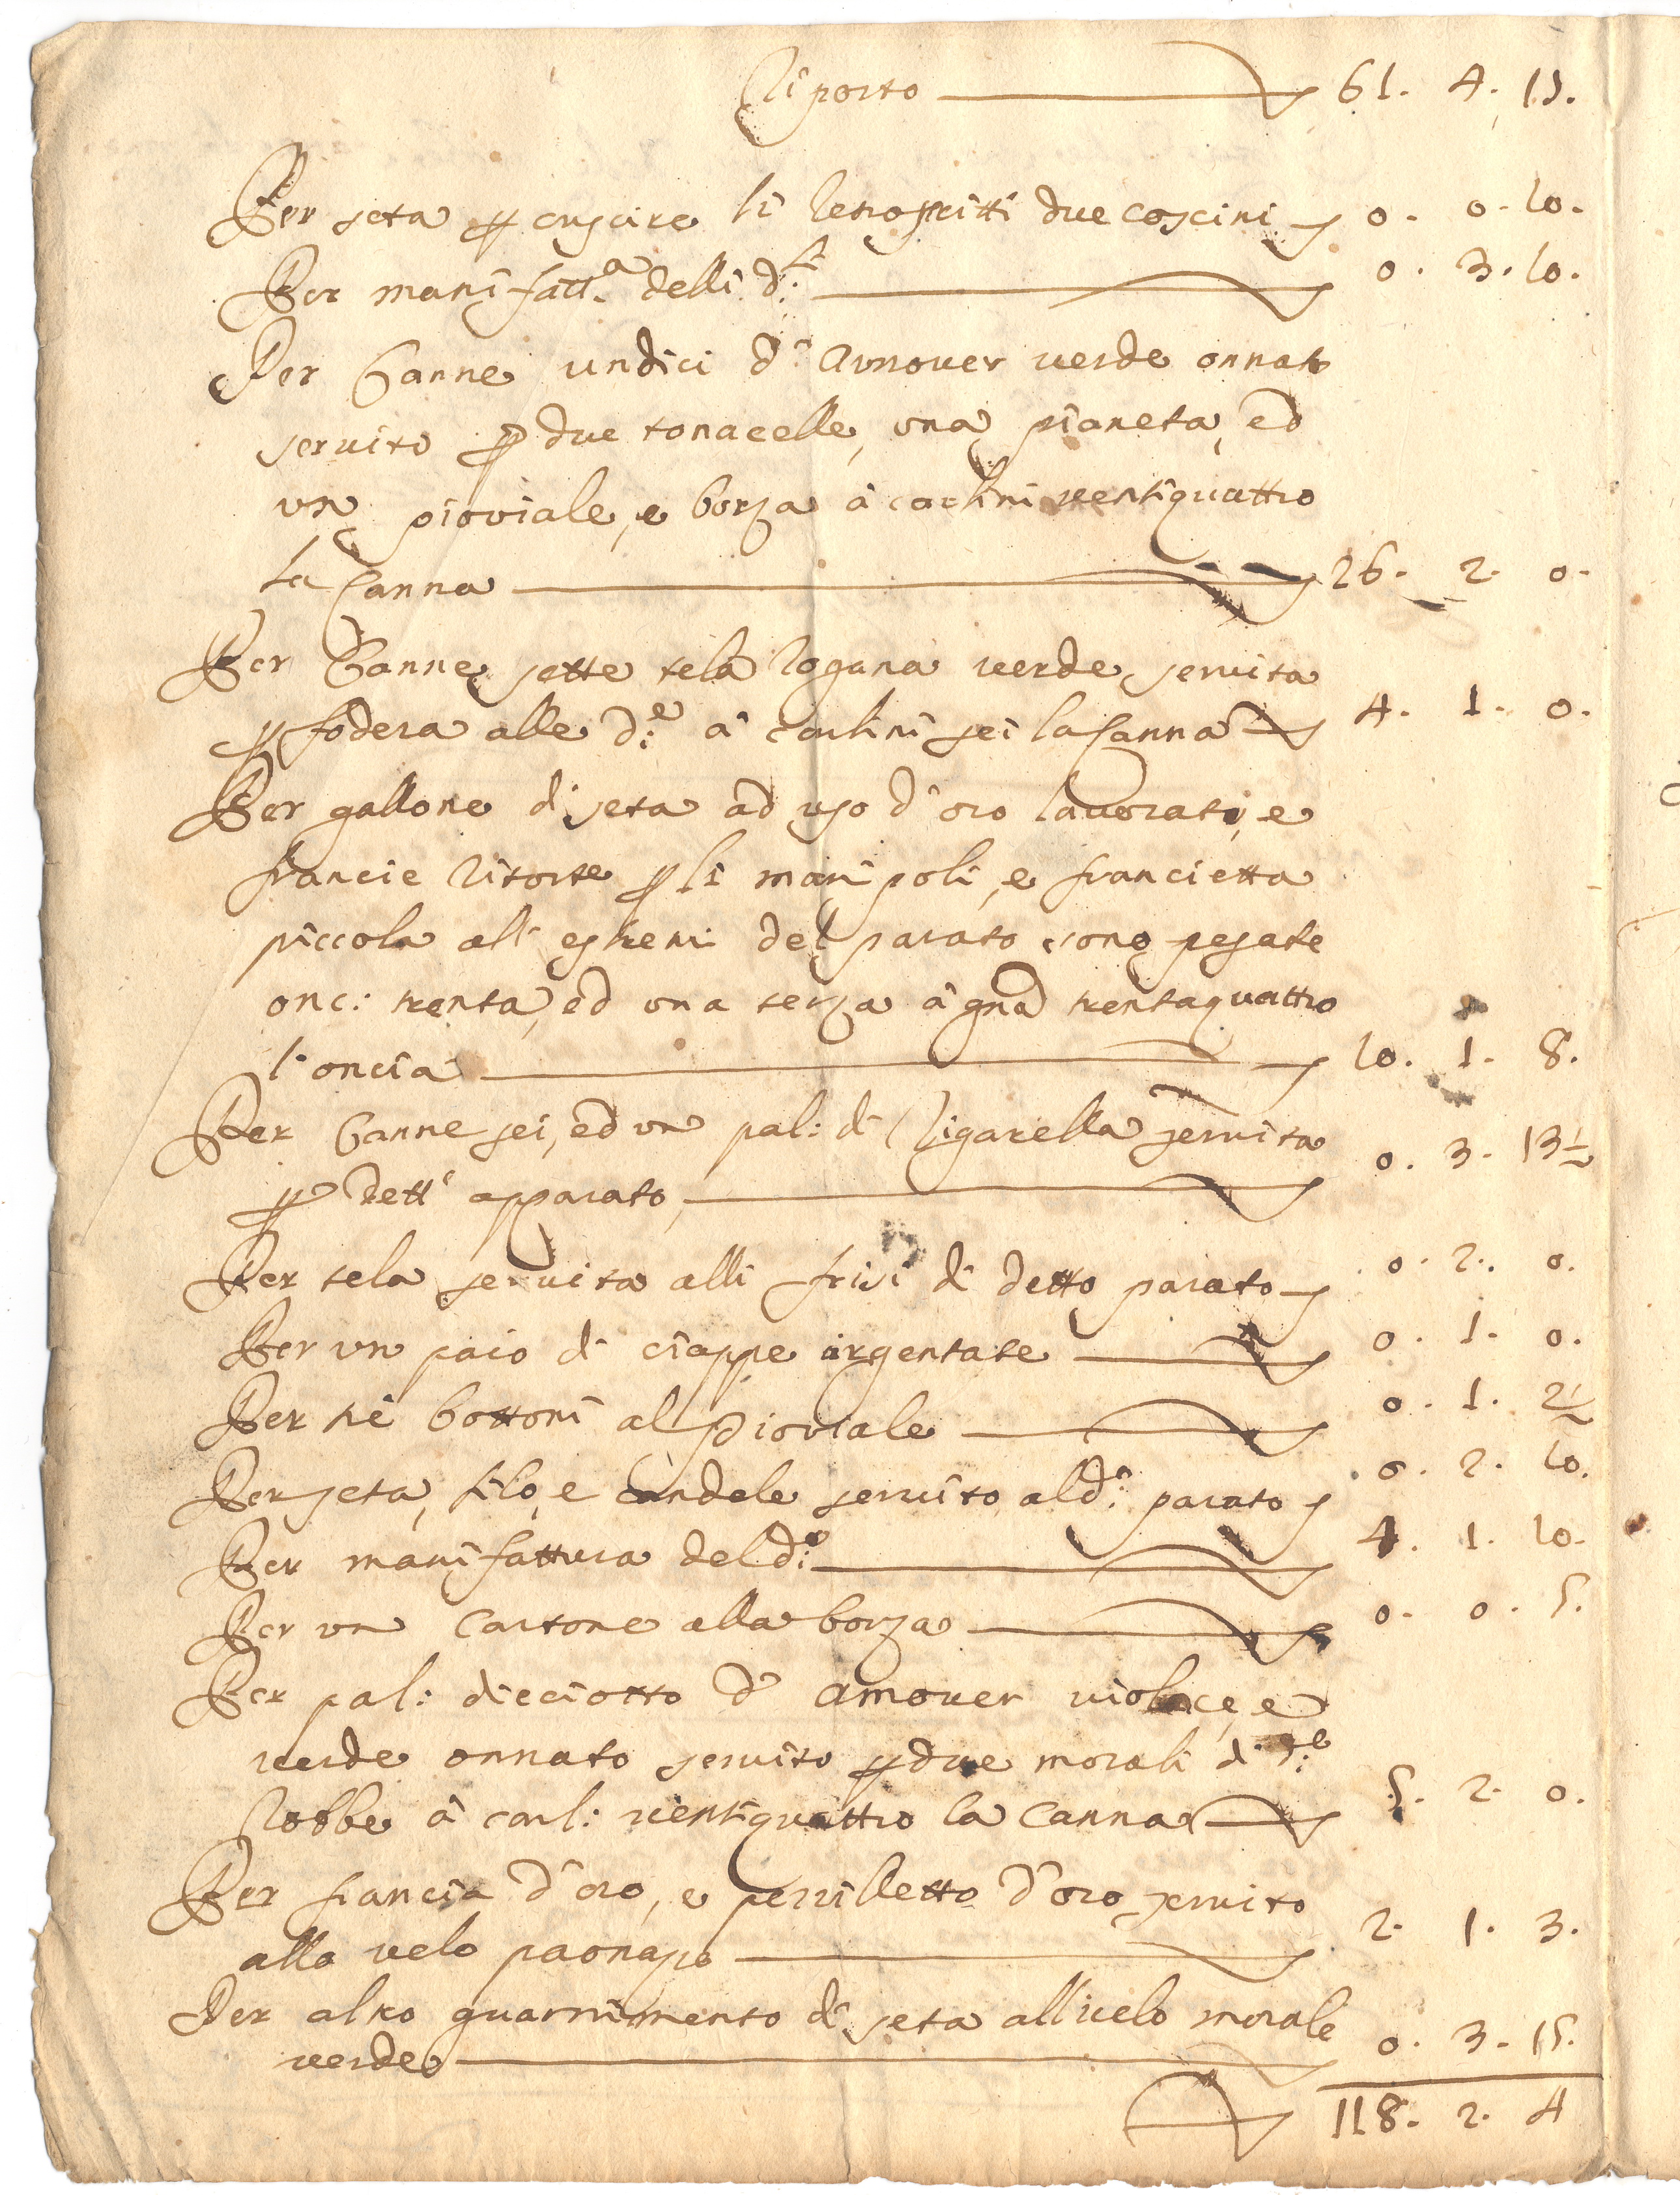 Riporto 61. 4. 15.
Per seta p cuscire li retroscitti due coscini 0. 0. 10.
Per manifatt.a delli d:i 0. 3. 10.
Per Canne undici d' Amouer verde onnato
servito p due tonacelle, una pianeta, ed
un pioviale, e borza à carlini ventiquattro
la Canna 26. 2. 0.
Per Canne sette tela logana verde servita
p fodera alle d:e à carlini sei la Canna 4. 1. 0.
Per gallone di seta ad uso d'oro lavorato, e
francie ritorte p li manipoli, e francietta
piccola all' estremi del parato sono pesate
onc: trenta, ed una terza à gnã trentaquattro
l'oncia 10. 1. 8.
Per Canne sei, ed un pal: di ligarella servita
p dett' apparato, 0. 3. 13½
Per tela servita alli frisi di detto parato 0. 2. 0.
Per un paio di ciappe argentate 0. 1. 0.
Per trè bottoni al pioviale 0. 1. 2½
Per seta, filo, e candele servito al d:o parato 0. 2. 10.
Per manifattura del d:o 4. 1. 10.
Per un cartone alla borza 0. 0. 5.
Per pal: dieciotto d' amouer violace, e
verde onnato servito p due morali di d:e
robbe à carl: ventiquattro la Canna 5. 2. 0.
Per francia d'oro, e perzilletto d'oro servito
alla velo paonazo 2. 1. 3.
Per altro guarnimento di seta all velo morale
verde 0. 3. 15.
118. 2. 4